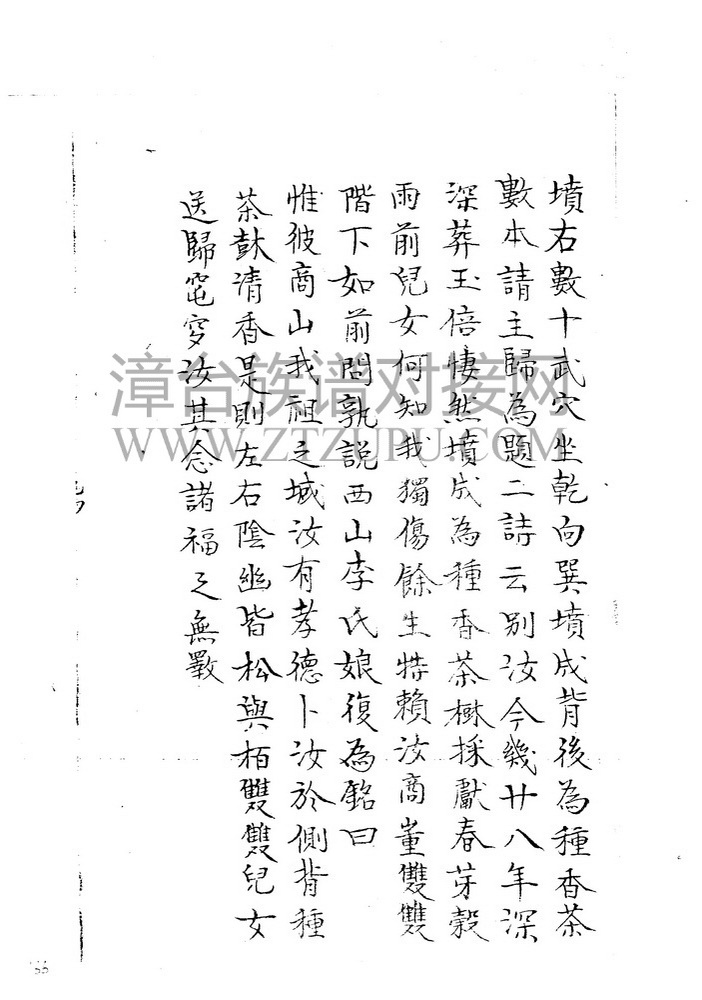 墳右數十武穴坐乾向巽墳成背後為種香茶
數本請主歸為題二詩云別汝今幾廿八年深
深葬玉倍悽然墳成為種香茶樹採獻春芽穀
雨前兒女何知我獨傷餘生特賴汝商量雙雙
階下如前問孰說西山李氏娘復為銘曰
惟彼商山我祖之域汝有孝德卜汝於側背種
茶菻清香是則左右陰幽皆松與栢雙雙兒女
送歸窀穸汝其念諸福之無斁
漳台族谱对接网
WWW.ZTZUPU.COM